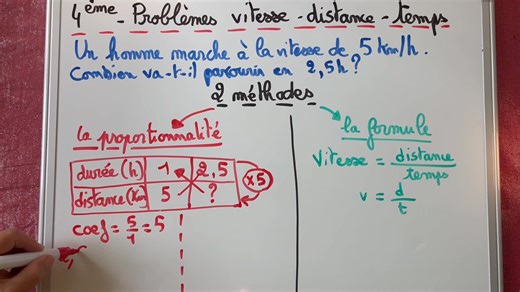 4ème - Problèmes vitesse - distance - temps
Un homme marche à la vitesse de 5 km/h.
Combien va-t-il parcourir en 2,5h?
2 méthodes
la proportionnalité
durée (h) 1 2,5
distance (km) 5 ?
x5
coef = 5/1 = 5
la formule
Vitesse = distance/temps
v = d/t